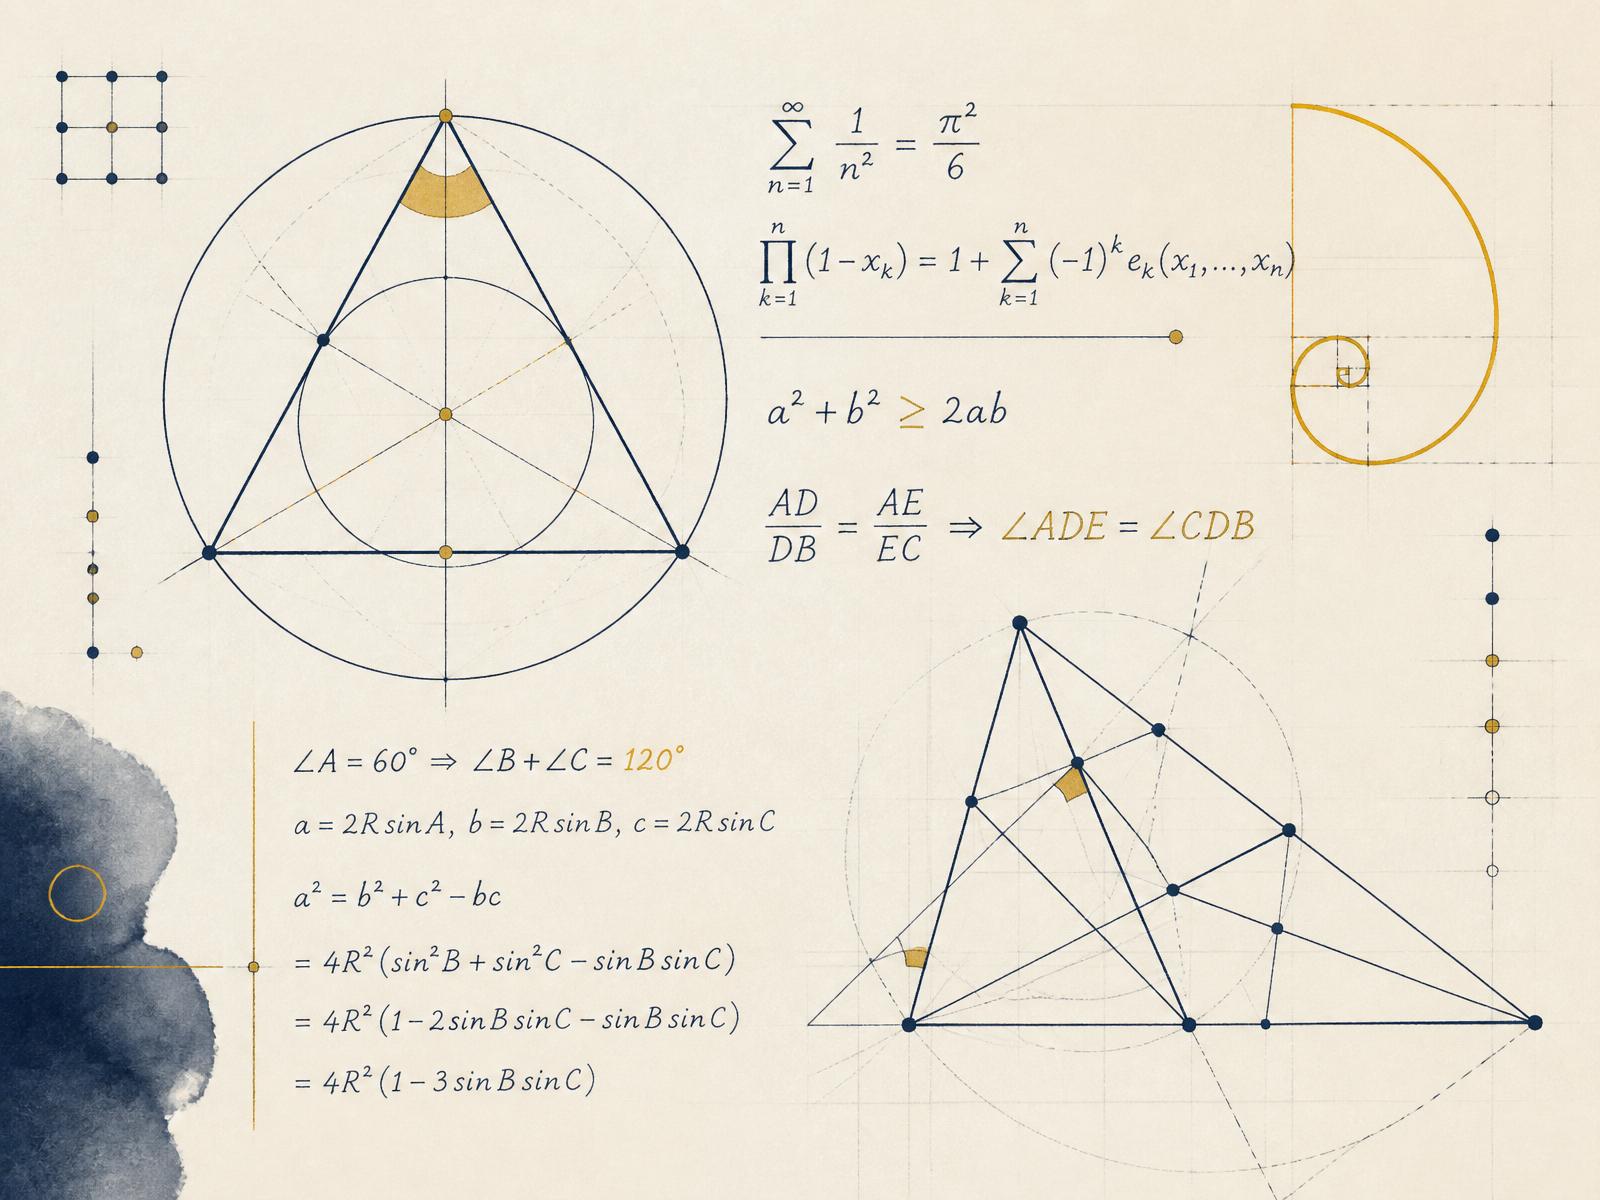 ∑_{n=1}^{∞} 1/n² = π²/6
∏_{k=1}^{n} (1−x_k) = 1+ ∑_{k=1}^{n} (−1)^k e_k(x₁,...,x_n)
a² + b² ≥ 2ab
AD/DB = AE/EC ⇒ ∠ADE = ∠CDB
∠A = 60° ⇒ ∠B+∠C = 120°
a = 2R sin A, b = 2R sin B, c = 2R sin C
a² = b² + c² − bc
= 4R² (sin² B + sin² C − sin B sin C)
= 4R² (1−2 sin B sin C − sin B sin C)
= 4R² (1−3 sin B sin C)